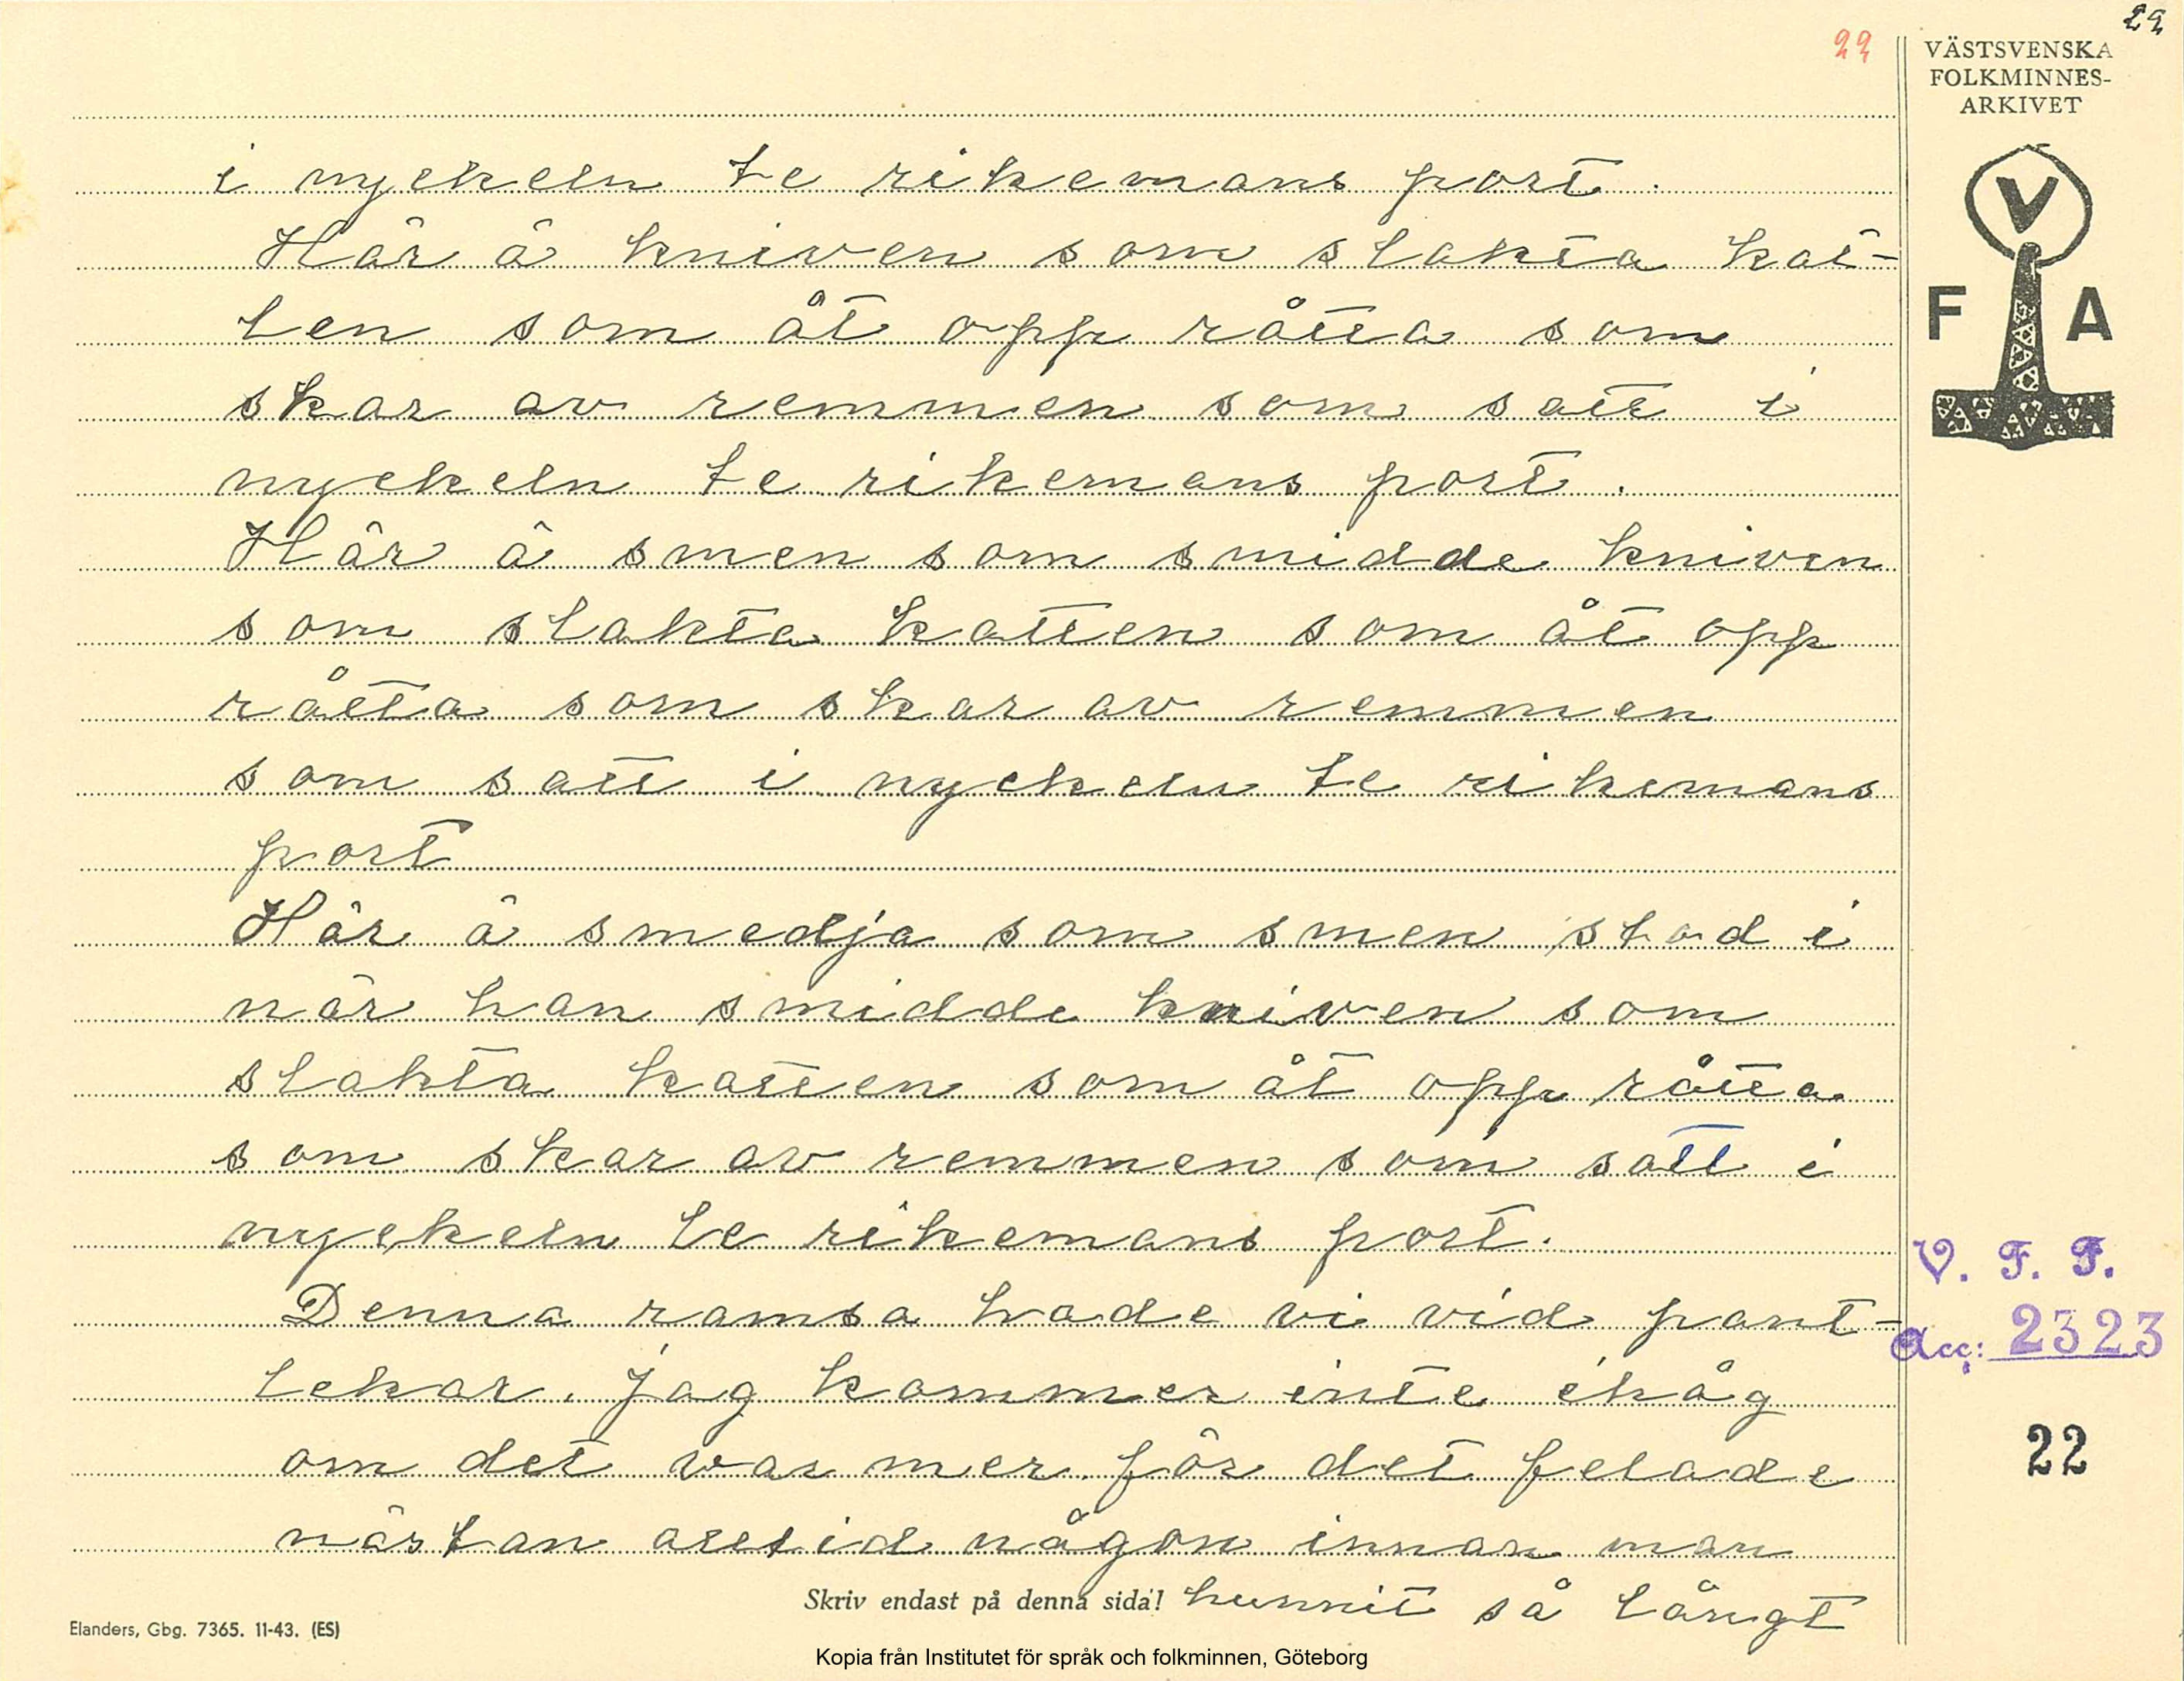 22
22
VÄSTSVENSKA
FOLKMINNES-
ARKIVET
V
F A
i nyckeln te rikemans port.
Här ä kniven som slakta kat-
ten som åt opp råtta som
skar av remmen som satt i
nyckeln te rikemans port.
Här ä smen som smidde kniven
som slakta katten som åt opp
råtta som skar av remmen
som satt i nyckeln te rikemans
port
Här ä smedja som smen stod i
när han smidde kniven som
slakta katten som åt opp råtta
som skar av remmen som satt i
nyckeln te rikemans port.
Denna ramsa hade vi vid pant-
lekar. Jag kommer inte ihåg
om det var mer för det felade
nästan alltid någon innan man
hunnit så långt
V. F. F.
Acc: 2323
22
Skriv endast på denna sida!
Elanders, Gbg. 7365. 11-43. (ES)
Kopia från Institutet för språk och folkminnen, Göteborg